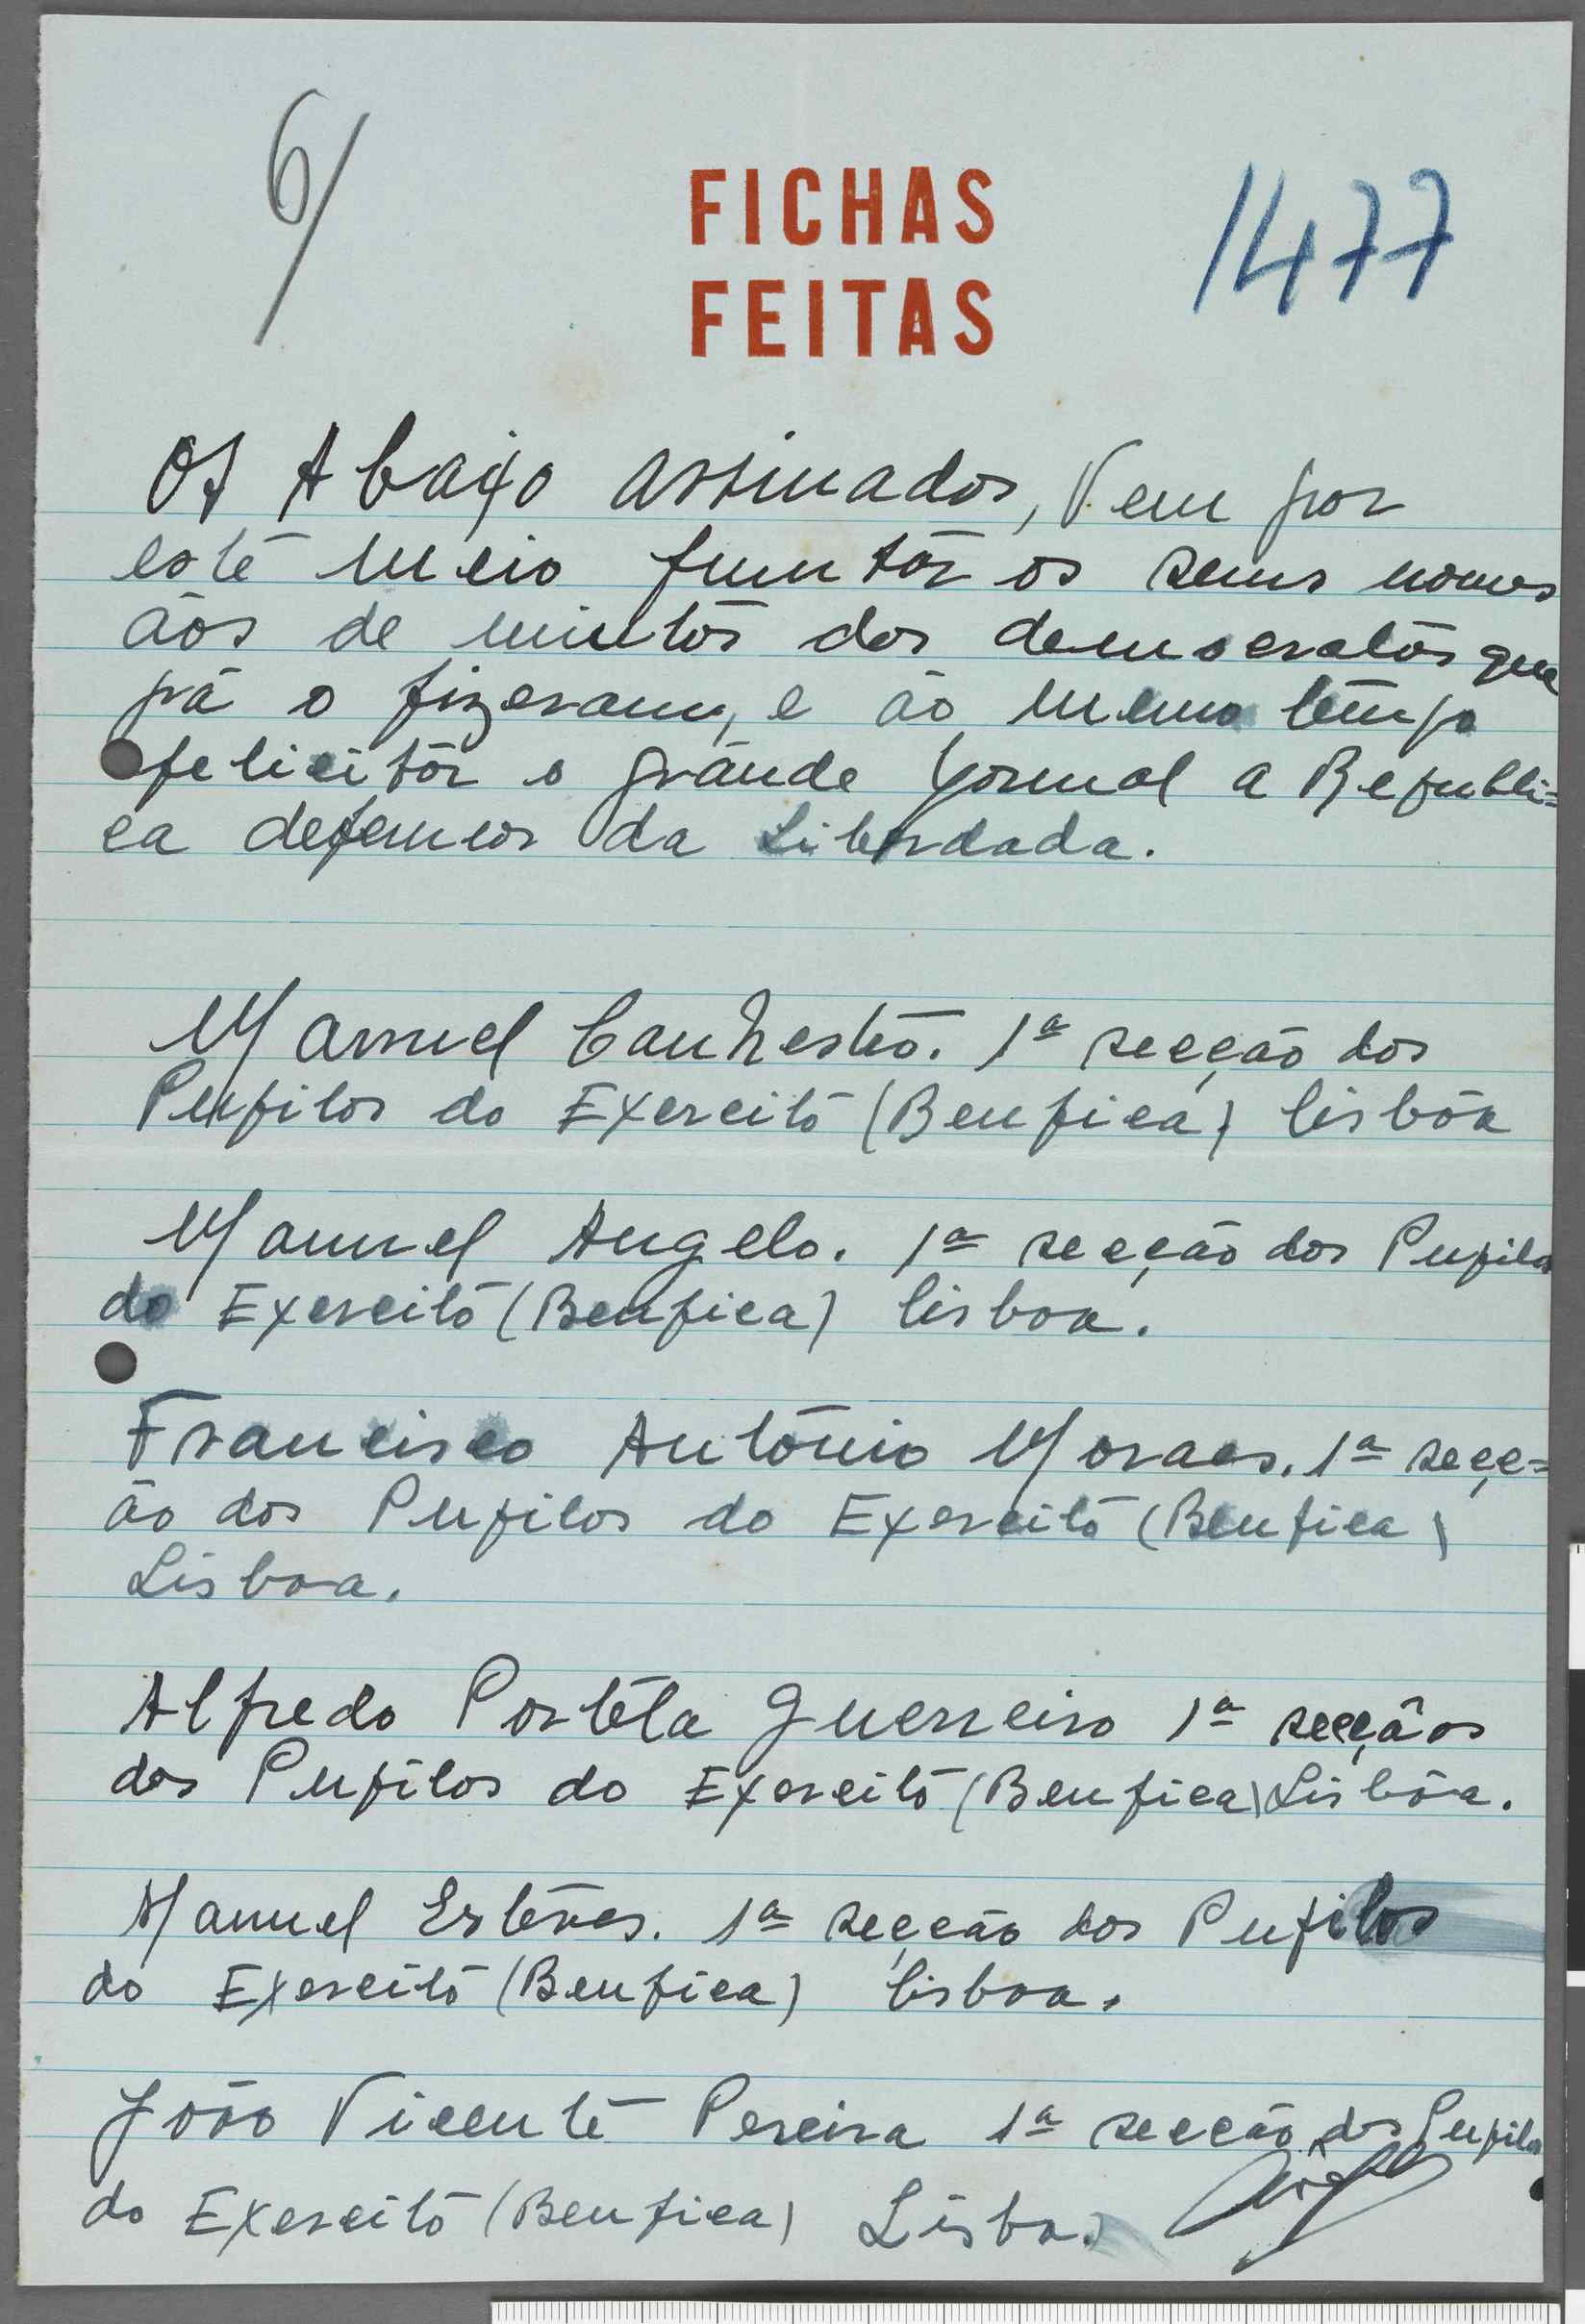 6/
FICHAS
FEITAS
1477
Os Abaixo assinados, Vem por
este meio juntár os seus nomes
áos de muitos dos democratas que
já o fizeram, e áo mesmo tempo
felicitár o grande Jornal a Republi=
ca defensor da Liberdada.
Manuel Canhestro. 1ª secção dos
Pupilos do Exercito (Benfica) lisbôa
Manuel Angelo. 1ª secção dos Pupilos
do Exercito (Benfica) lisboa.
Francisco António Moraes. 1ª secç=
ão dos Pupilos do Exercito (Benfica)
Lisboa.
Alfredo Portéla Guerreiro 1ª secçãos
dos Pupilos do Exercito (Benfica) Lisbôa.
Manuel Estêves. 1ª secção dos Pupilos
do Exercito (Benfica) lisboa.
João Vicente Pereira 1ª secção dos Pupilos
do Exercito (Benfica) Lisboa.